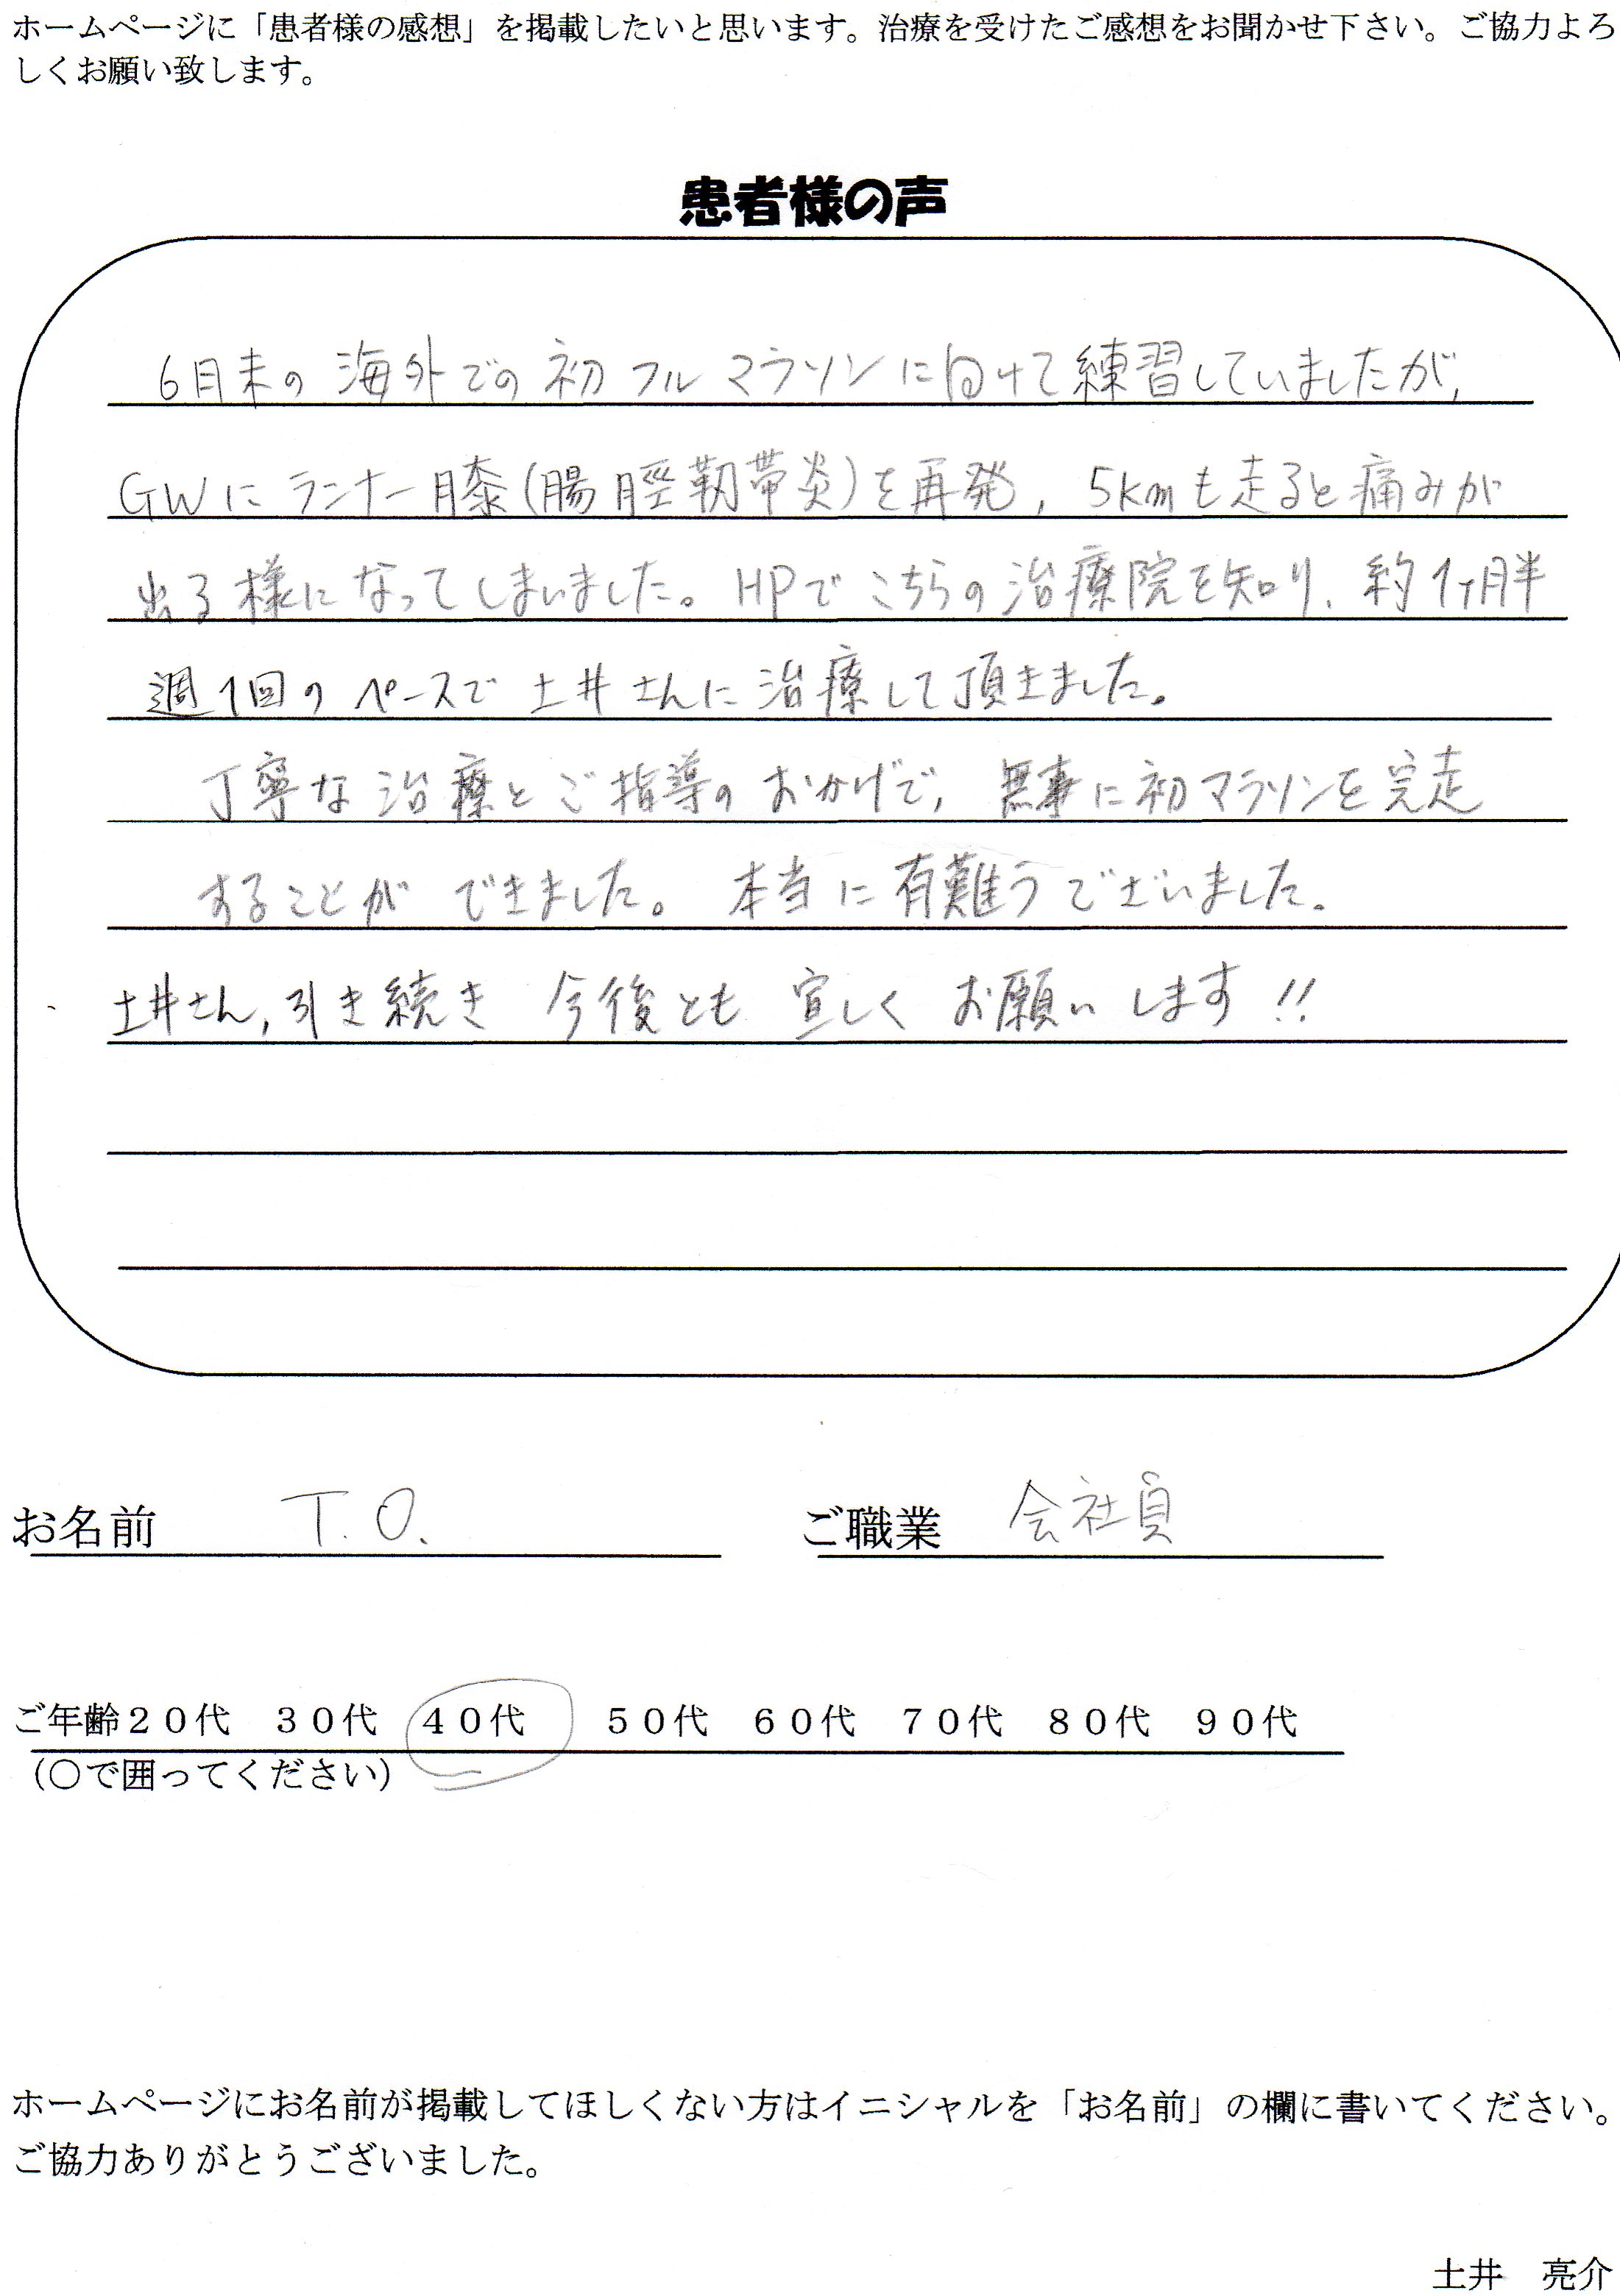 ホームページに「患者様の感想」を掲載したいと思います。治療を受けたご感想をお聞かせ下さい。ご協力よろ
しくお願い致します。
患者様の声
6月末の海外での初フルマラソンに向けて練習していましたが,
GWにランナー膝(腸脛靭帯炎)を再発, 5kmも走ると痛みが
出る様になってしまいました。HPでこちらの治療院を知り、約1ヶ月半
週1回のペースで土井さんに治療して頂きました。
丁寧な治療とご指導のおかげで, 無事に初マラソンを完走
することができました。本当に有難うございました。
土井さん, 引き続き 今後とも 宜しく お願いします!!
お名前 T.O. ご職業 会社員
ご年齢20代 30代 40代 50代 60代 70代 80代 90代
(○で囲ってください)
ホームページにお名前が掲載してほしくない方はイニシャルを「お名前」の欄に書いてください。
ご協力ありがとうございました。
土井 亮介